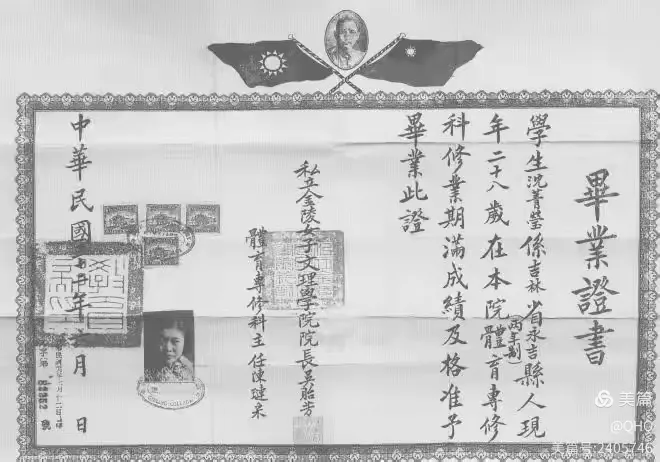 畢業證書
學生沈菁瑩係吉林省永吉縣人現
年二十八歲在本院體育專修
(兩年制)
科修業期滿成績及格准予
畢業此證
私立金陵女子文理學院院長吳貽芳
體育專修科主任陳
中華民國
年
月
日
字第
號
美篇
@QHQ
美篇号:2405746